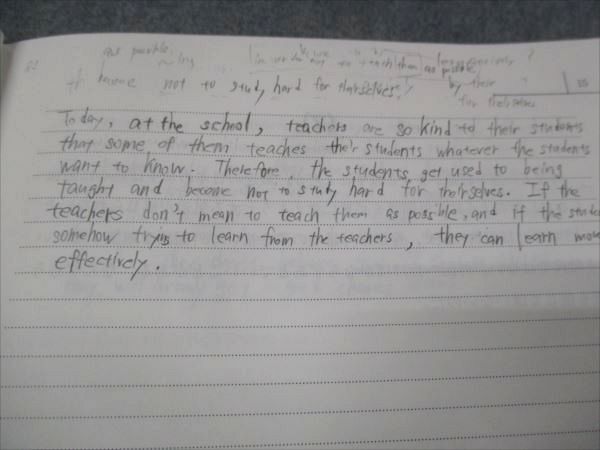 as possible
not to study hard for themselves.
by their
for themselves
Today, at the school, teachers are so kind to their students
that some of them teaches their students whatever the students
want to know. Therefore, the students get used to being
taught and become not to study hard for theirselves. If the
teachers don't mean to teach them as possible, and if the
somehow trying to learn from the teachers, they can learn
effectively.